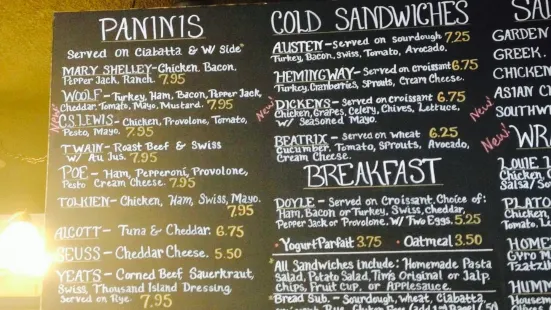 PANINIS
Served on Ciabatta & W/ Side
MARY SHELLEY - Chicken, Bacon,
Pepper Jack, Ranch. 7.95
WOOLF - Turkey, Ham, Bacon, Pepper Jack,
Cheddar, Tomato, Mayo, Mustard. 7.95
New
C.S. LEWIS - Chicken, Provolone, Tomato,
Pesto, Mayo. 7.95
TWAIN - Roast Beef & Swiss
w/ Au Jus. 7.95
POE - Ham, Pepperoni, Provolone,
Pesto Cream Cheese. 7.95
TOLKIEN - Chicken, Ham, Swiss, Mayo.
7.95
ALCOTT - Tuna & Cheddar. 6.75
SEUSS - Cheddar Cheese. 5.50
YEATS - Corned Beef, Sauerkraut,
Swiss, Thousand Island Dressing,
Served on Rye. 7.95
COLD SANDWICHES
AUSTEN - Served on Sourdough 7.25
Turkey, Bacon, Swiss, Tomato, Avocado.
HEMINGWAY - Served on Croissant 6.75
Turkey, Cranberries, Sprouts, Cream Cheese.
New
DICKENS - Served on Croissant 6.75
Chicken, Grapes, Celery, Chives, Lettuce,
w/ Seasoned Mayo.
BEATRIX - Served on Wheat 6.25
Cucumber, Tomato, Sprouts, Avocado,
Cream Cheese.
BREAKFAST
DOYLE - Served on Croissant. Choice of:
Ham, Bacon or Turkey, Swiss, Cheddar,
Pepper Jack or Provolone. w/ Two Eggs. 5.25
• Yogurt Parfait 3.75 • Oatmeal 3.50
All Sandwiches Include: Homemade Pasta
Salad, Potato Salad, Tim's Original or Jalp.
Chips, Fruit Cup, or Applesauce.
*Bread Sub. - Sourdough, Wheat, Ciabatta,
SA
GARDEN
GREEK.
CHICKEN
ASIAN C
New
SOUTHW
New
WR
LOUIE
Chicken
Salsa/So
PLATO
Chicken
Tomat
HOME
Gyro M
Tzatzi
HUMM